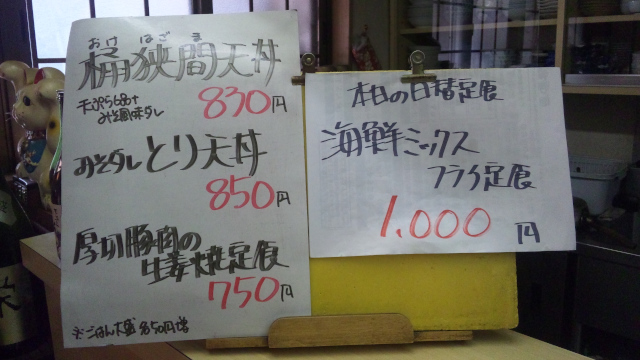 おけはざま
桶狭間天丼
天ぷら6ヶ+
みそ風味ダレ
830円
みそダレとり天丼
850円
厚切豚肉の
生姜焼定食
750円
※ごはん大盛 50円増
本日の日替定食
海鮮ミックス
フライ定食
1,000円